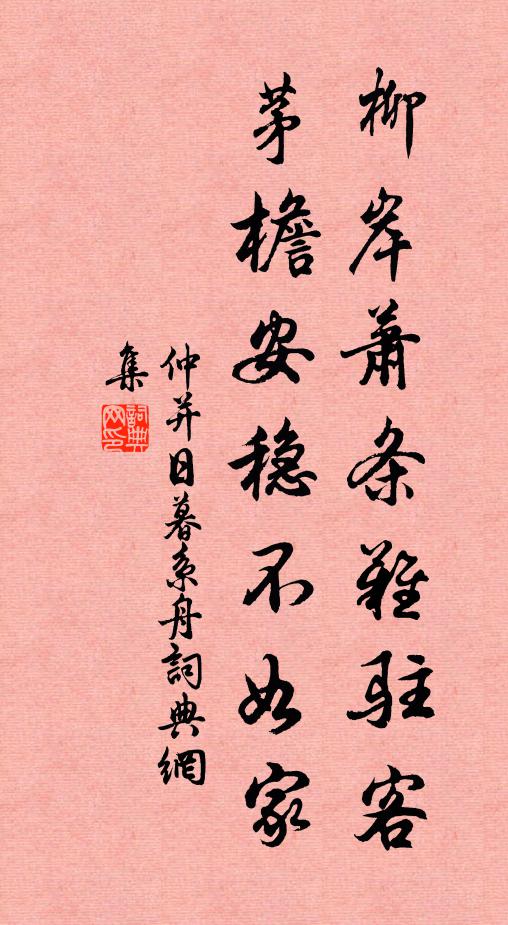 柳岸萧条难驻客
茅檐安稳不如家
仲并日暮系舟詞典網
集
詞典网印